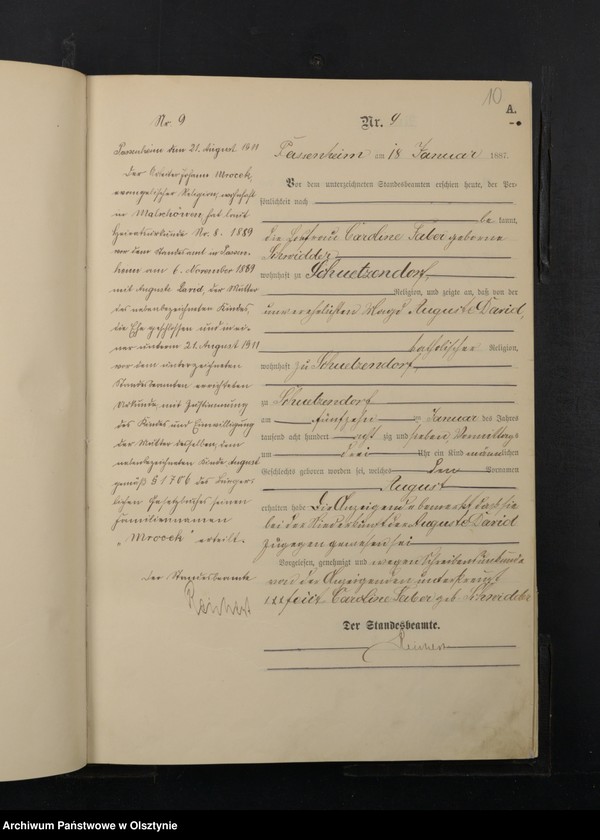 10
A.
Nr. 9
Passenheim den 21. August 1911
Der Arbeiter Johann Mrocek,
evangelischer Religion, wohnhaft
in Malschöwen hat laut
Heiratsurkunde Nr. 8. 1889
vor dem Standesamt in Passen-
heim am 6. November 1889
mit Auguste David, der Mutter
des nebenbezeichneten Kindes,
die Ehe geschlossen und in ei-
ner unterm 21. August 1911
vor dem unterzeichneten
Standesbeamten errichteten
Urkunde mit Zustimmung
des Kindes und Einwilligung
der Mutter desselben, dem
nebenbezeichneten Kinde August
gemäß § 1706 des Bürger-
lichen Gesetzbuches seinen
Familiennamen
"Mrocek" erteilt.
Der Standesbeamte
Nr. 9
Passenheim am 18 Januar 1887.
Vor dem unterzeichneten Standesbeamten erschien heute, der Per-
sönlichkeit nach
be kannt,
die Losfrau Caroline geborene
wohnhaft zu Schuetzendorf
Religion, und zeigte an, daß von der
unverehelichten Magd Auguste David,
katholischer Religion,
wohnhaft zu Schuetzendorf
zu Schuetzendorf
am fünfzehn ten Januar des Jahres
tausend acht hundert acht zig und sieben Vormittags
um drei Uhr ein Kind männlichen
Geschlechts geboren worden sei, welches den Vornamen
August
erhalten habe. Die Anzeigende bemerkt, daß sie
bei der Niederkunft der Auguste David
zugegen gewesen sei
Vorgelesen, genehmigt und wegen Schreibensunkunde
von der Anzeigenden unterkreuzt
xxx Caroline geb.
Der Standesbeamte.
Archiwum Państwowe w Olsztynie